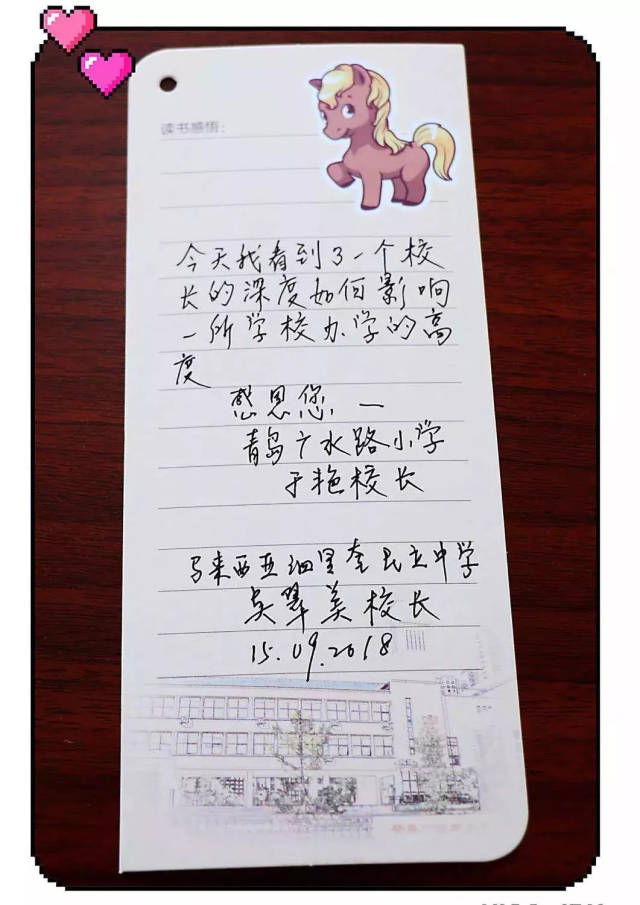 读书感悟:
今天我看到了一个校
长的深度如何影响
一所学校办学的高
度
感恩您, 一
青岛广水路小学
于艳校长
马来西亚泗里奎民立中学
吴翠美校长
15.09.2018